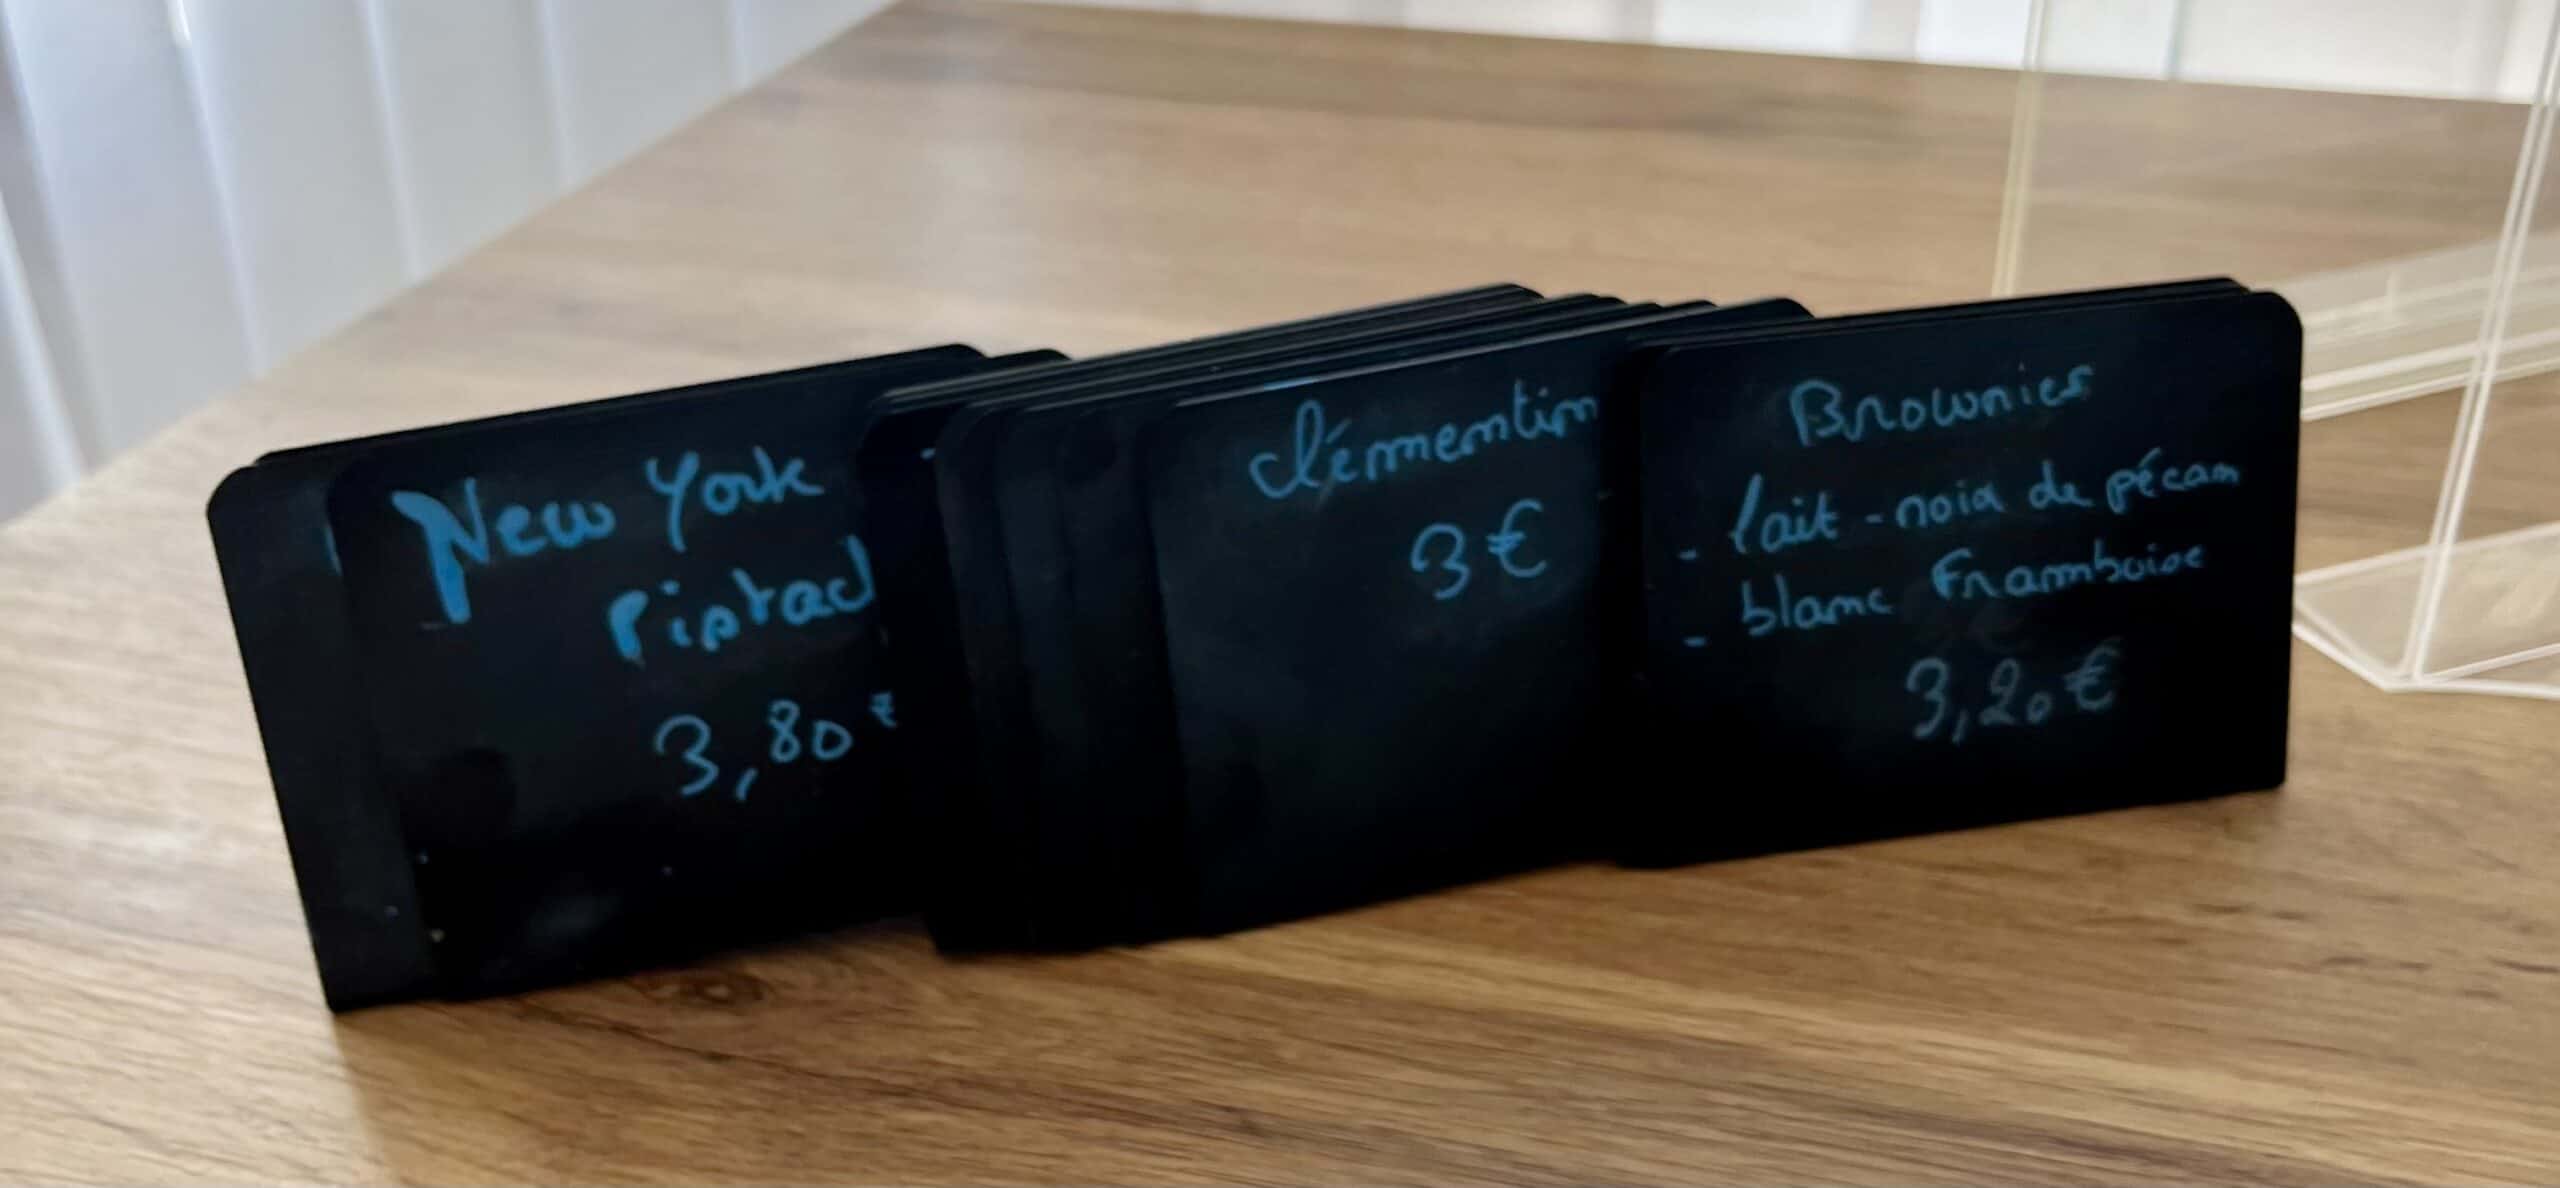 New York
Pistach
3,80 €
Clémentin
3 €
Brownies
- lait - noix de pécan
- blanc Framboise
3,20 €